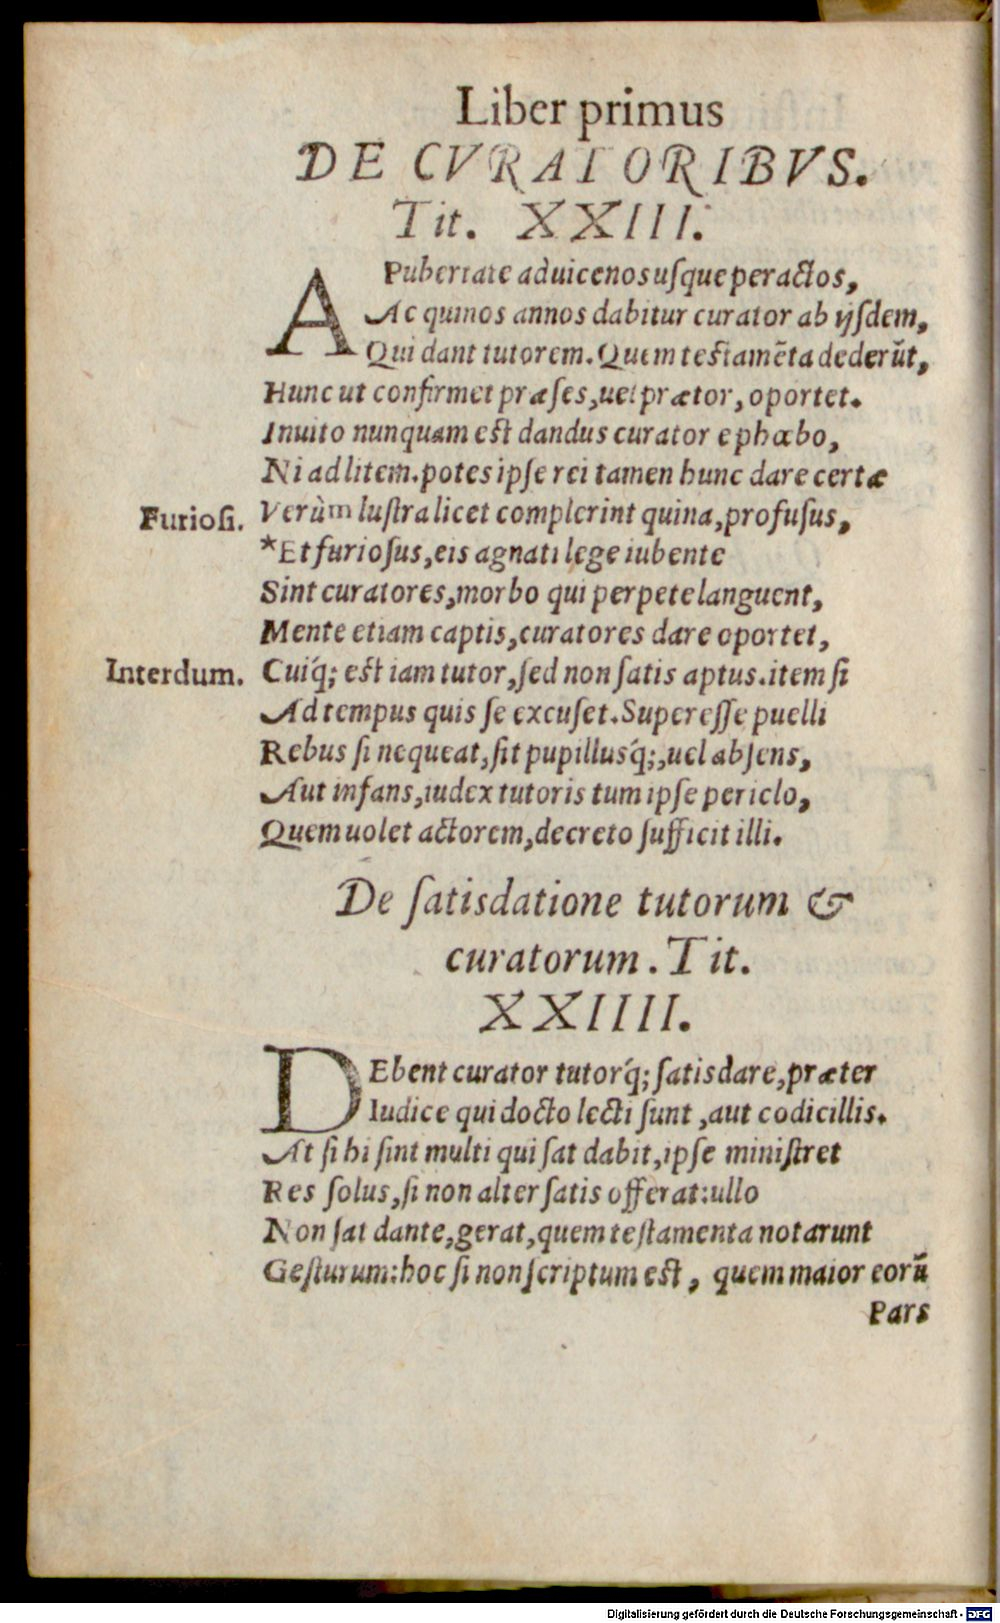 Liber primus
DE CVRATORIBVS.
Tit. XXIII.
A Pubertate ad uicenos usque peractos,
Ac quinos annos dabitur curator ab ijsdem,
Qui dant tutorem. Quem testamēta dederūt,
Hunc ut confirmet præses, uel prætor, oportet.
Inuito nunquam est dandus curator ephœbo,
Ni ad litem. potes ipse rei tamen hunc dare certæ
Furiosi. Verùm lustra licet complerint quina, profusus,
*Et furiosus, eis agnati lege iubente
Sint curatores, morbo qui perpete languent,
Mente etiam captis, curatores dare oportet,
Interdum. Cuiq́; est iam tutor, sed non satis aptus. item si
Ad tempus quis se excuset. Superesse puelli
Rebus si nequeat, sit pupillusq́;, uel absens,
Aut infans, iudex tutoris tum ipse periclo,
Quem uolet actorem, decreto sufficit illi.
De satisdatione tutorum &
curatorum. Tit.
XXIIII.
DEbent curator tutorq́; satisdare, præter
Iudice qui docto lecti sunt, aut codicillis.
At si hi sint multi qui sat dabit, ipse ministret
Res solus, si non alter satis offerat: ullo
Non sat dante, gerat, quem testamenta notarunt
Gesturum: hoc si non scriptum est, quem maior eorū
Pars
Digitalisierung gefördert durch die Deutsche Forschungsgemeinschaft - DFG